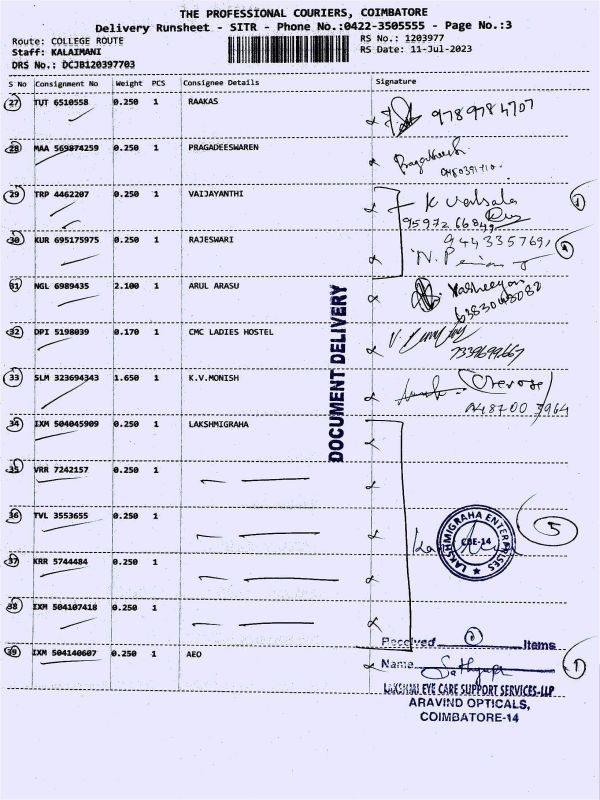 THE PROFESSIONAL COURIERS, COIMBATORE
Delivery Runsheet - SITR - Phone No.:0422-3505555 - Page No.:3
Route: COLLEGE ROUTE
Staff: KALAIMANI
DRS No.: DCJB120397703
RS No.: 1203977
RS Date: 11-Jul-2023
S No Consignment No Weight PCS Consignee Details Signature
27 TUT 6510558 0.250 1 RAAKAS 9789784707
28 MAA 569874259 0.250 1 PRAGADEESWAREN
29 TRP 4462207 0.250 1 VAIJAYANTHI K Valsala
9597266849
30 KUR 695175975 0.250 1 RAJESWARI
31 NGL 6989435 2.100 1 ARUL ARASU
32 DPI 5198039 0.170 1 CMC LADIES HOSTEL
33 SLM 323694343 1.650 1 K.V.MONISH
34 IXM 504045909 0.250 1 LAKSHMIGRAHA
35 VRR 7242157 0.250 1
36 TVL 3553655 0.250 1
37 KRR 5744484 0.250 1
38 IXM 504107418 0.250 1
39 IXM 504140607 0.250 1 AEO
DOCUMENT DELIVERY
LAKSHMIGRAHA ENTERPRISES
CBE-14
5
Received Items
Name Sathya
1
LAKSHMI EYE CARE SUPPORT SERVICES-LLP
ARAVIND OPTICALS,
COIMBATORE-14